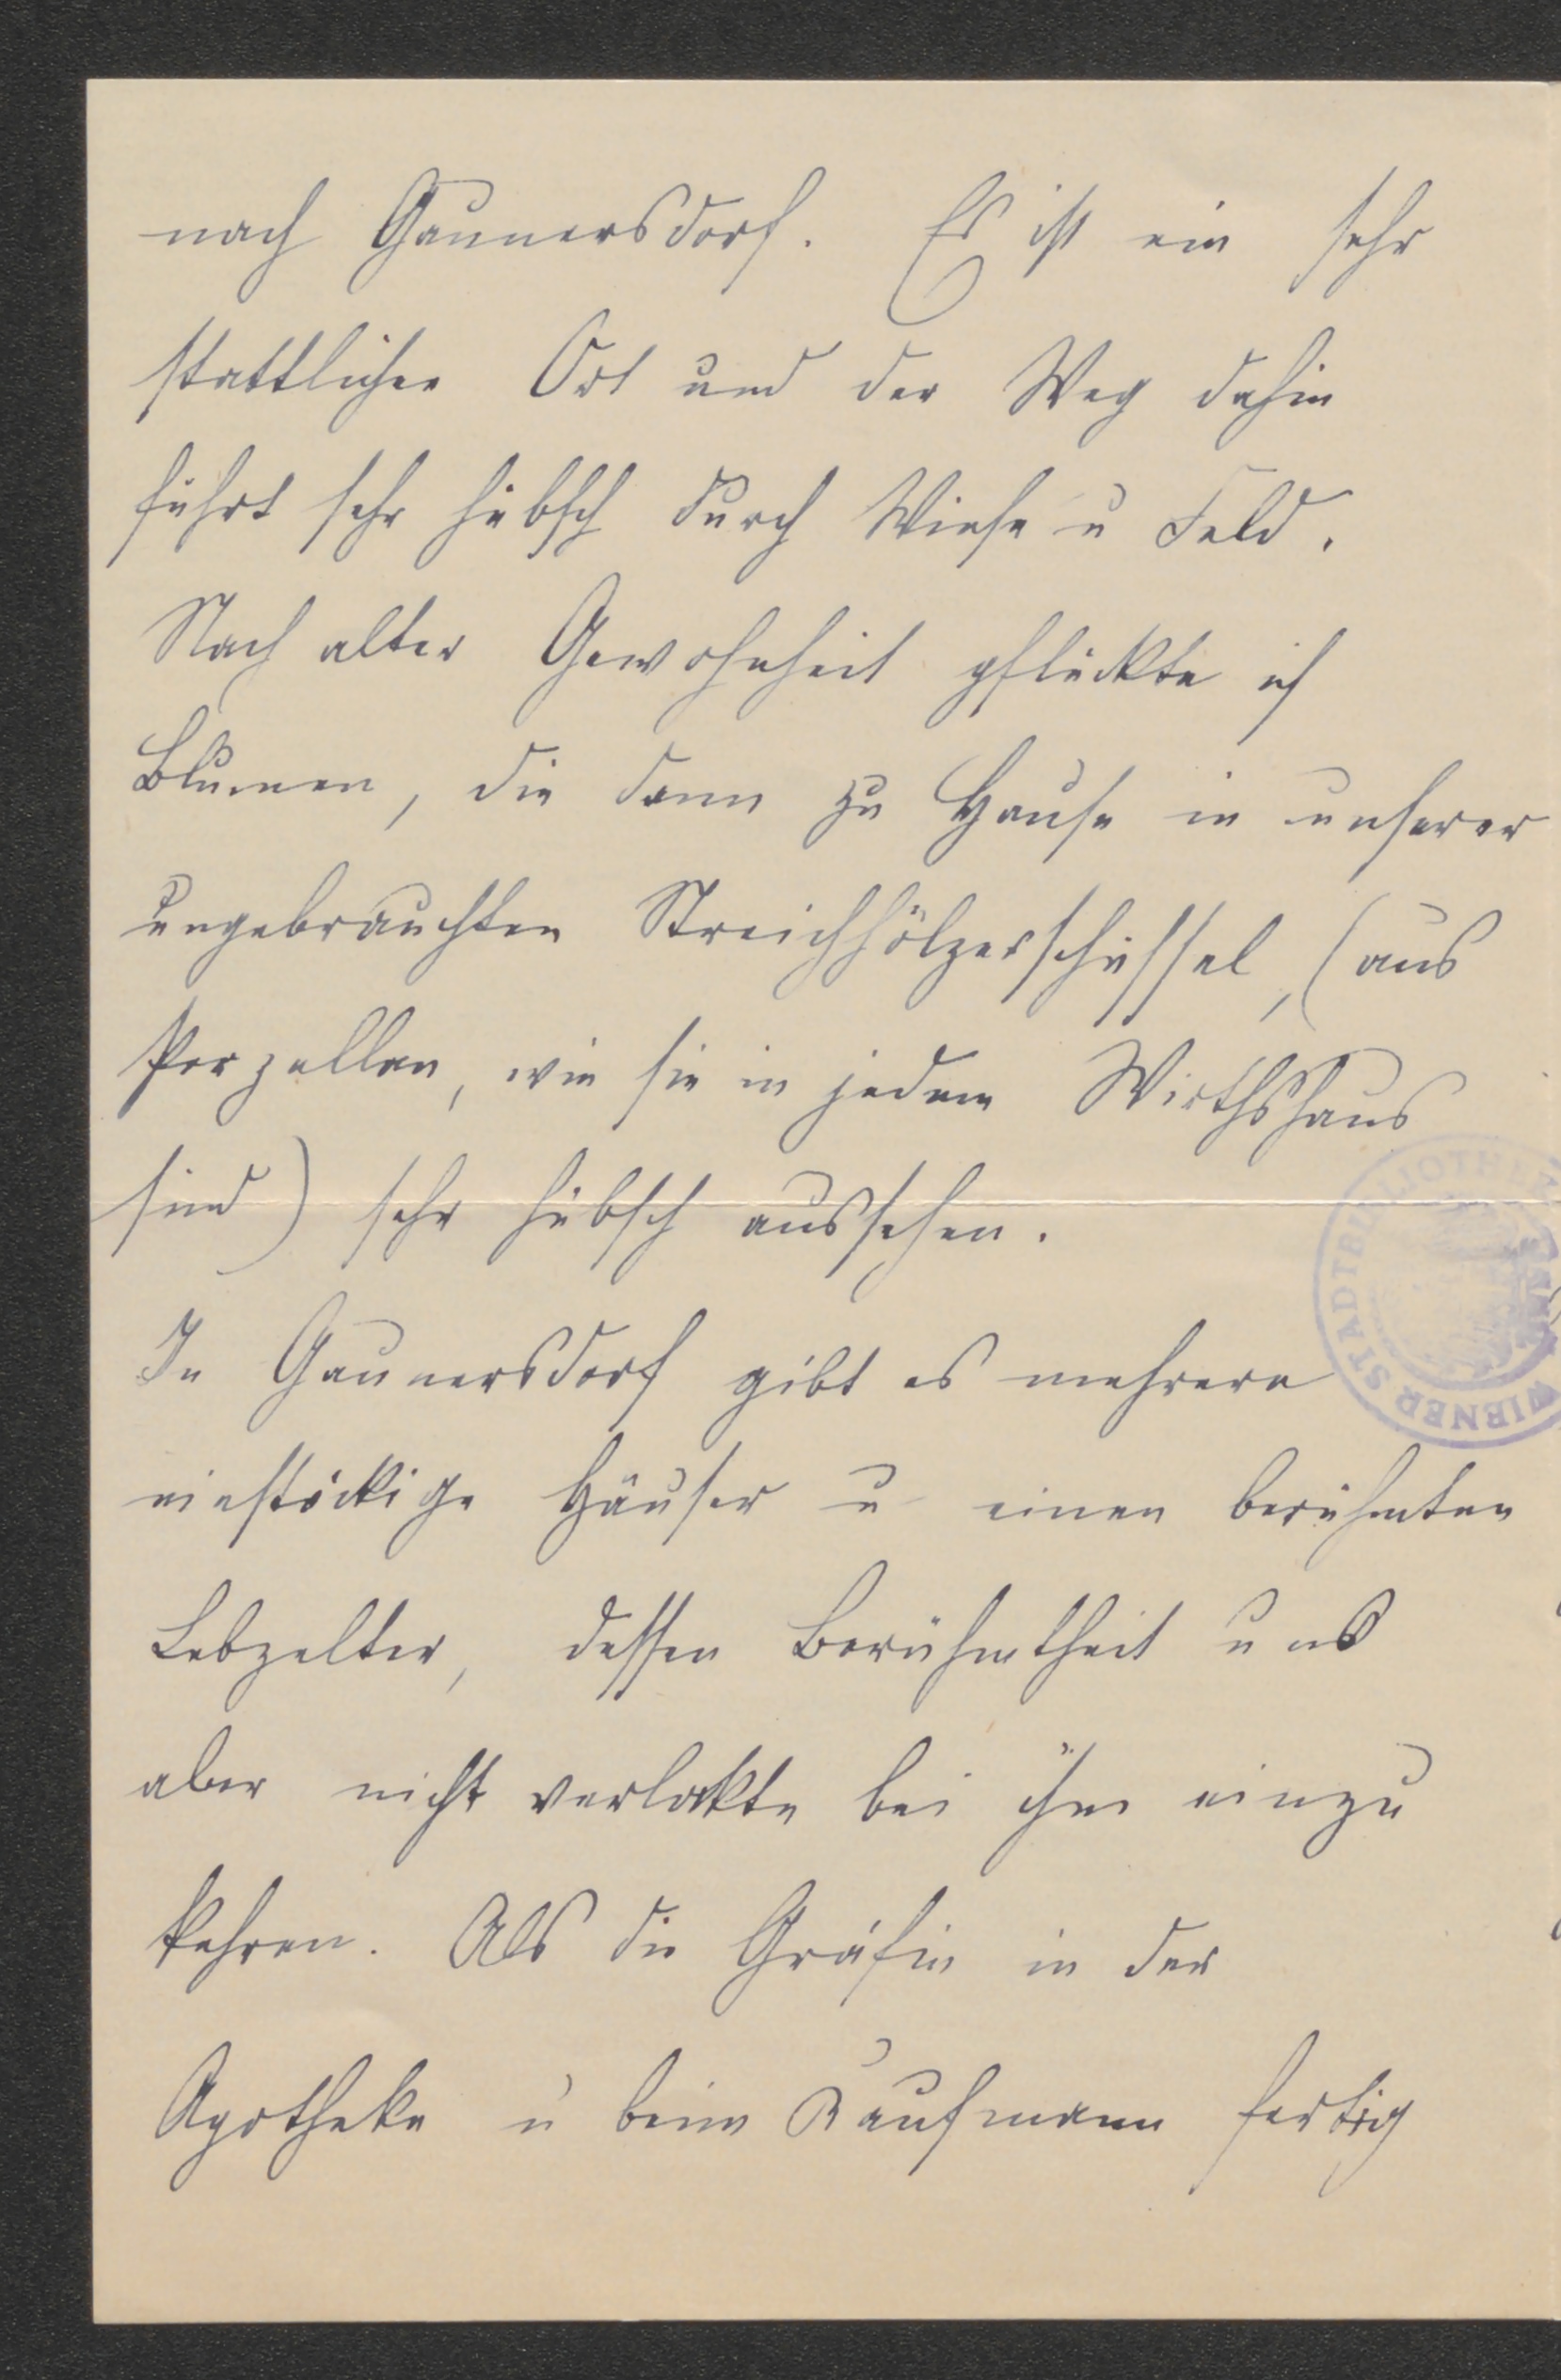 nach Gaunersdorf. Es ist ein sehr
stattlicher Ort und der Weg dahin
führt sehr hübsch durch Wiese u Feld.
Nach alter Gewohnheit pflückte ich
Blumen, die dann zu Hause in unserer
ungebrauchten Streichhölzerschüssel, (aus
Porzellan, wie sie in jedem Wirthshaus
sind) sehr hübsch aussehen.
In Gaunersdorf gibt es mehrere
einstöckige Häuser u einen berühmten
Lebzelter, dessen Berühmtheit uns
aber nicht verlockte bei ihm einzu
kehren. Als die Gräfin in der
Apotheke u beim Kaufmann fertig
WIENER STADTBIBLIOTHEK